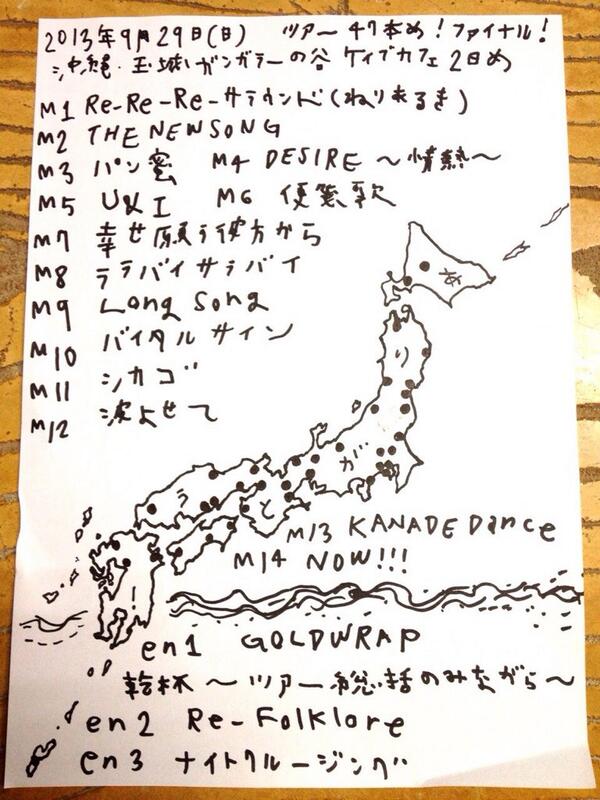 2013年9月29日(日) ツアー47本め!ファイナル!
沖縄・玉城ガンガラーの谷 ケイブカフェ 2日め
M1 Re-Re-Re-サラウンド(ねりあるき)
M2 THE NEWSONG
M3 パン蜜 M4 DESIRE 〜情熱〜
M5 U&I M6 便箋歌
M7 幸せ願う彼方から
M8 ララバイサラバイ
M9 Long Song
M10 バイタルサイン
M11 シカゴ
M12 波よせて
M13 KANADE Dance
M14 NOW!!!
あ
り
が
と
う
!
en1 GOLDWRAP
乾杯 〜ツアー総括のみながら〜
en2 Re-Folklore
en3 ナイトクルージング